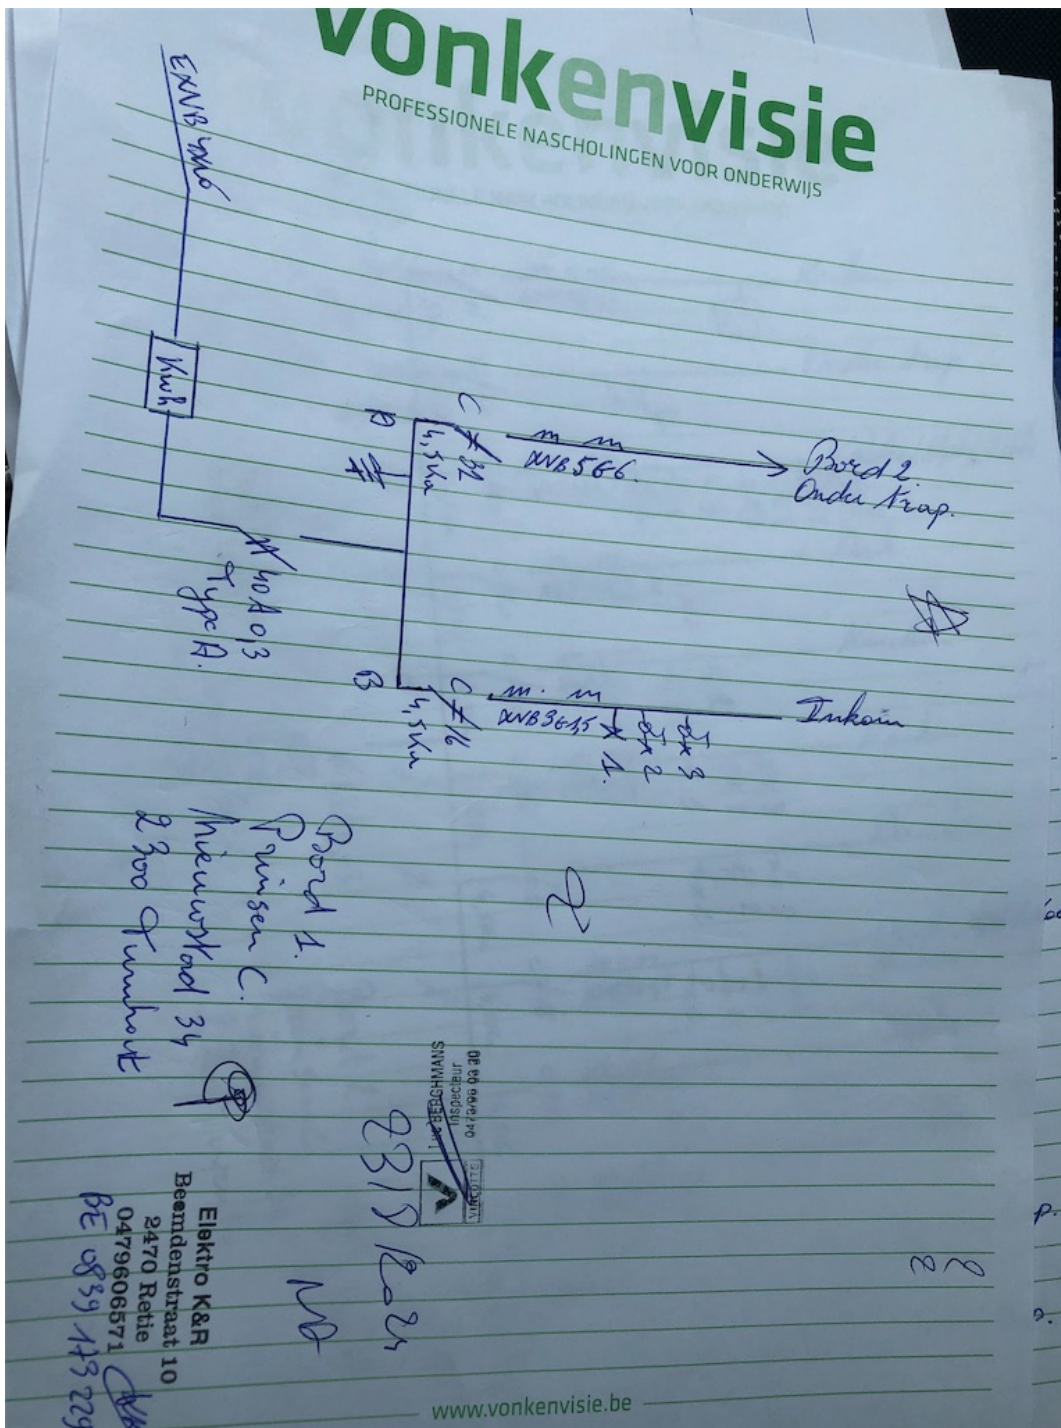 vonkenvisie
PROFESSIONELE NASCHOLINGEN VOOR ONDERWIJS
EXVB 4x16
Kwh
40A 0,3
Type A.
A
C 32
4,5 KA
XVB 5G6.
Bord 2.
Onder trap.
B
C 16
4,5 KA
XVB 3G1,5
1.
2
3
Inkom
Bord 1.
Prinsen C.
Nieuwstad 34
2300 Turnhout
BERGHMANS
Inspecteur
VINÇOTTE
Elektro K&R
Beemdenstraat 10
2470 Retie
0479606571
BE 0839 173 229
www.vonkenvisie.be